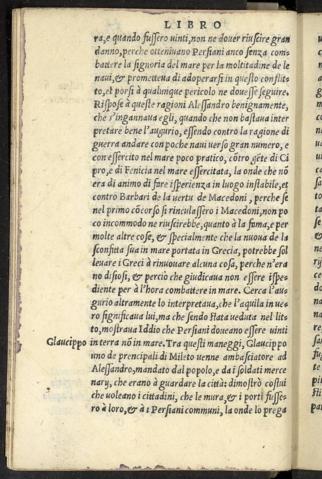 LIBRO
ra, e quando fussero uinti, non ne douer riuscire gran
danno, perche ottenuano Persiani anco senza com=
battere la signoria del mare per la moltitudine de le
naui, & prometteua di adoperarsi in questo conflit=
to, et porsi à qualunque pericolo ne douesse seguire.
Rispose à queste ragioni Alessandro benignamente,
che s'ingannaua egli, quando che non bastaua inter
pretare bene l'augurio, essendo contro la ragione di
guerra andare con poche naui uerso gran numero, e
con essercito nel mare poco pratico, cōtro gēte di Ci
pro, e di Fenicia nel mare essercitata, la onde nō
era di animo di fare isperienza in luogo instabile, et
contro Barbari de la uertu de Macedoni, perche se
nel primo cōcorso si rinculassero i Macedoni, non po
co incommodo ne riuscirebbe, quanto à la fama, e per
molte altre cose, & spetialmente che la nuoua de la
sconfitta sua in mare portata in Grecia, potrebbe sol
leuare i Greci à rinuouare alcuna cosa, perche n'era
no disiosi, & perciò che giudicaua non essere ispe=
diente per à l'hora combattere in mare. Cerca l'au=
gurio altramente lo interpretaua, che l'aquila in ue=
ro significaua lui, ma che sendo stata ueduta nel lit=
to, mostraua Iddio che Persiani doueano essere uinti
Glaucippo in terra nō in mare. Tra questi maneggi, Glaucippo
uno de prencipali di Mileto uenne ambasciatore ad
Alessandro, mandato dal popolo, e da i soldati merce
nary, che erano à guardare la città: dimostrò costui
che uoleano i cittadini, che le mura, & i porti fusse=
ro à loro, & à i Persiani communi, la onde lo prega